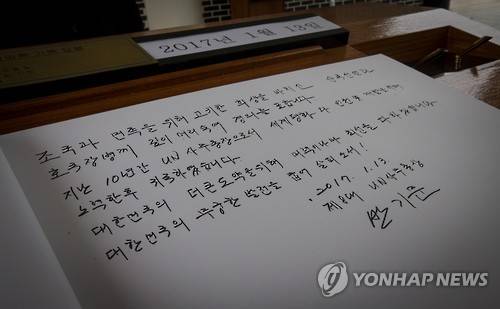 2017년 1월 13일
조국과 민족을 위해 고귀한 희생을 바치신 순국선열과
호국장병께 깊이 머리숙여 경의를 표합니다.
지난 10년간 UN 사무총장으로서 세계평화와 인권 및 개발을 위해
노력한 후 귀국하였습니다.
대한민국의 더 큰 도약을 위해 미력이나마 최선을 다하겠습니다.
대한민국의 무궁한 발전을 굽어 살펴 소서!
2017. 1. 13
제8대 UN사무총장
반기문
YONHAP NEWS